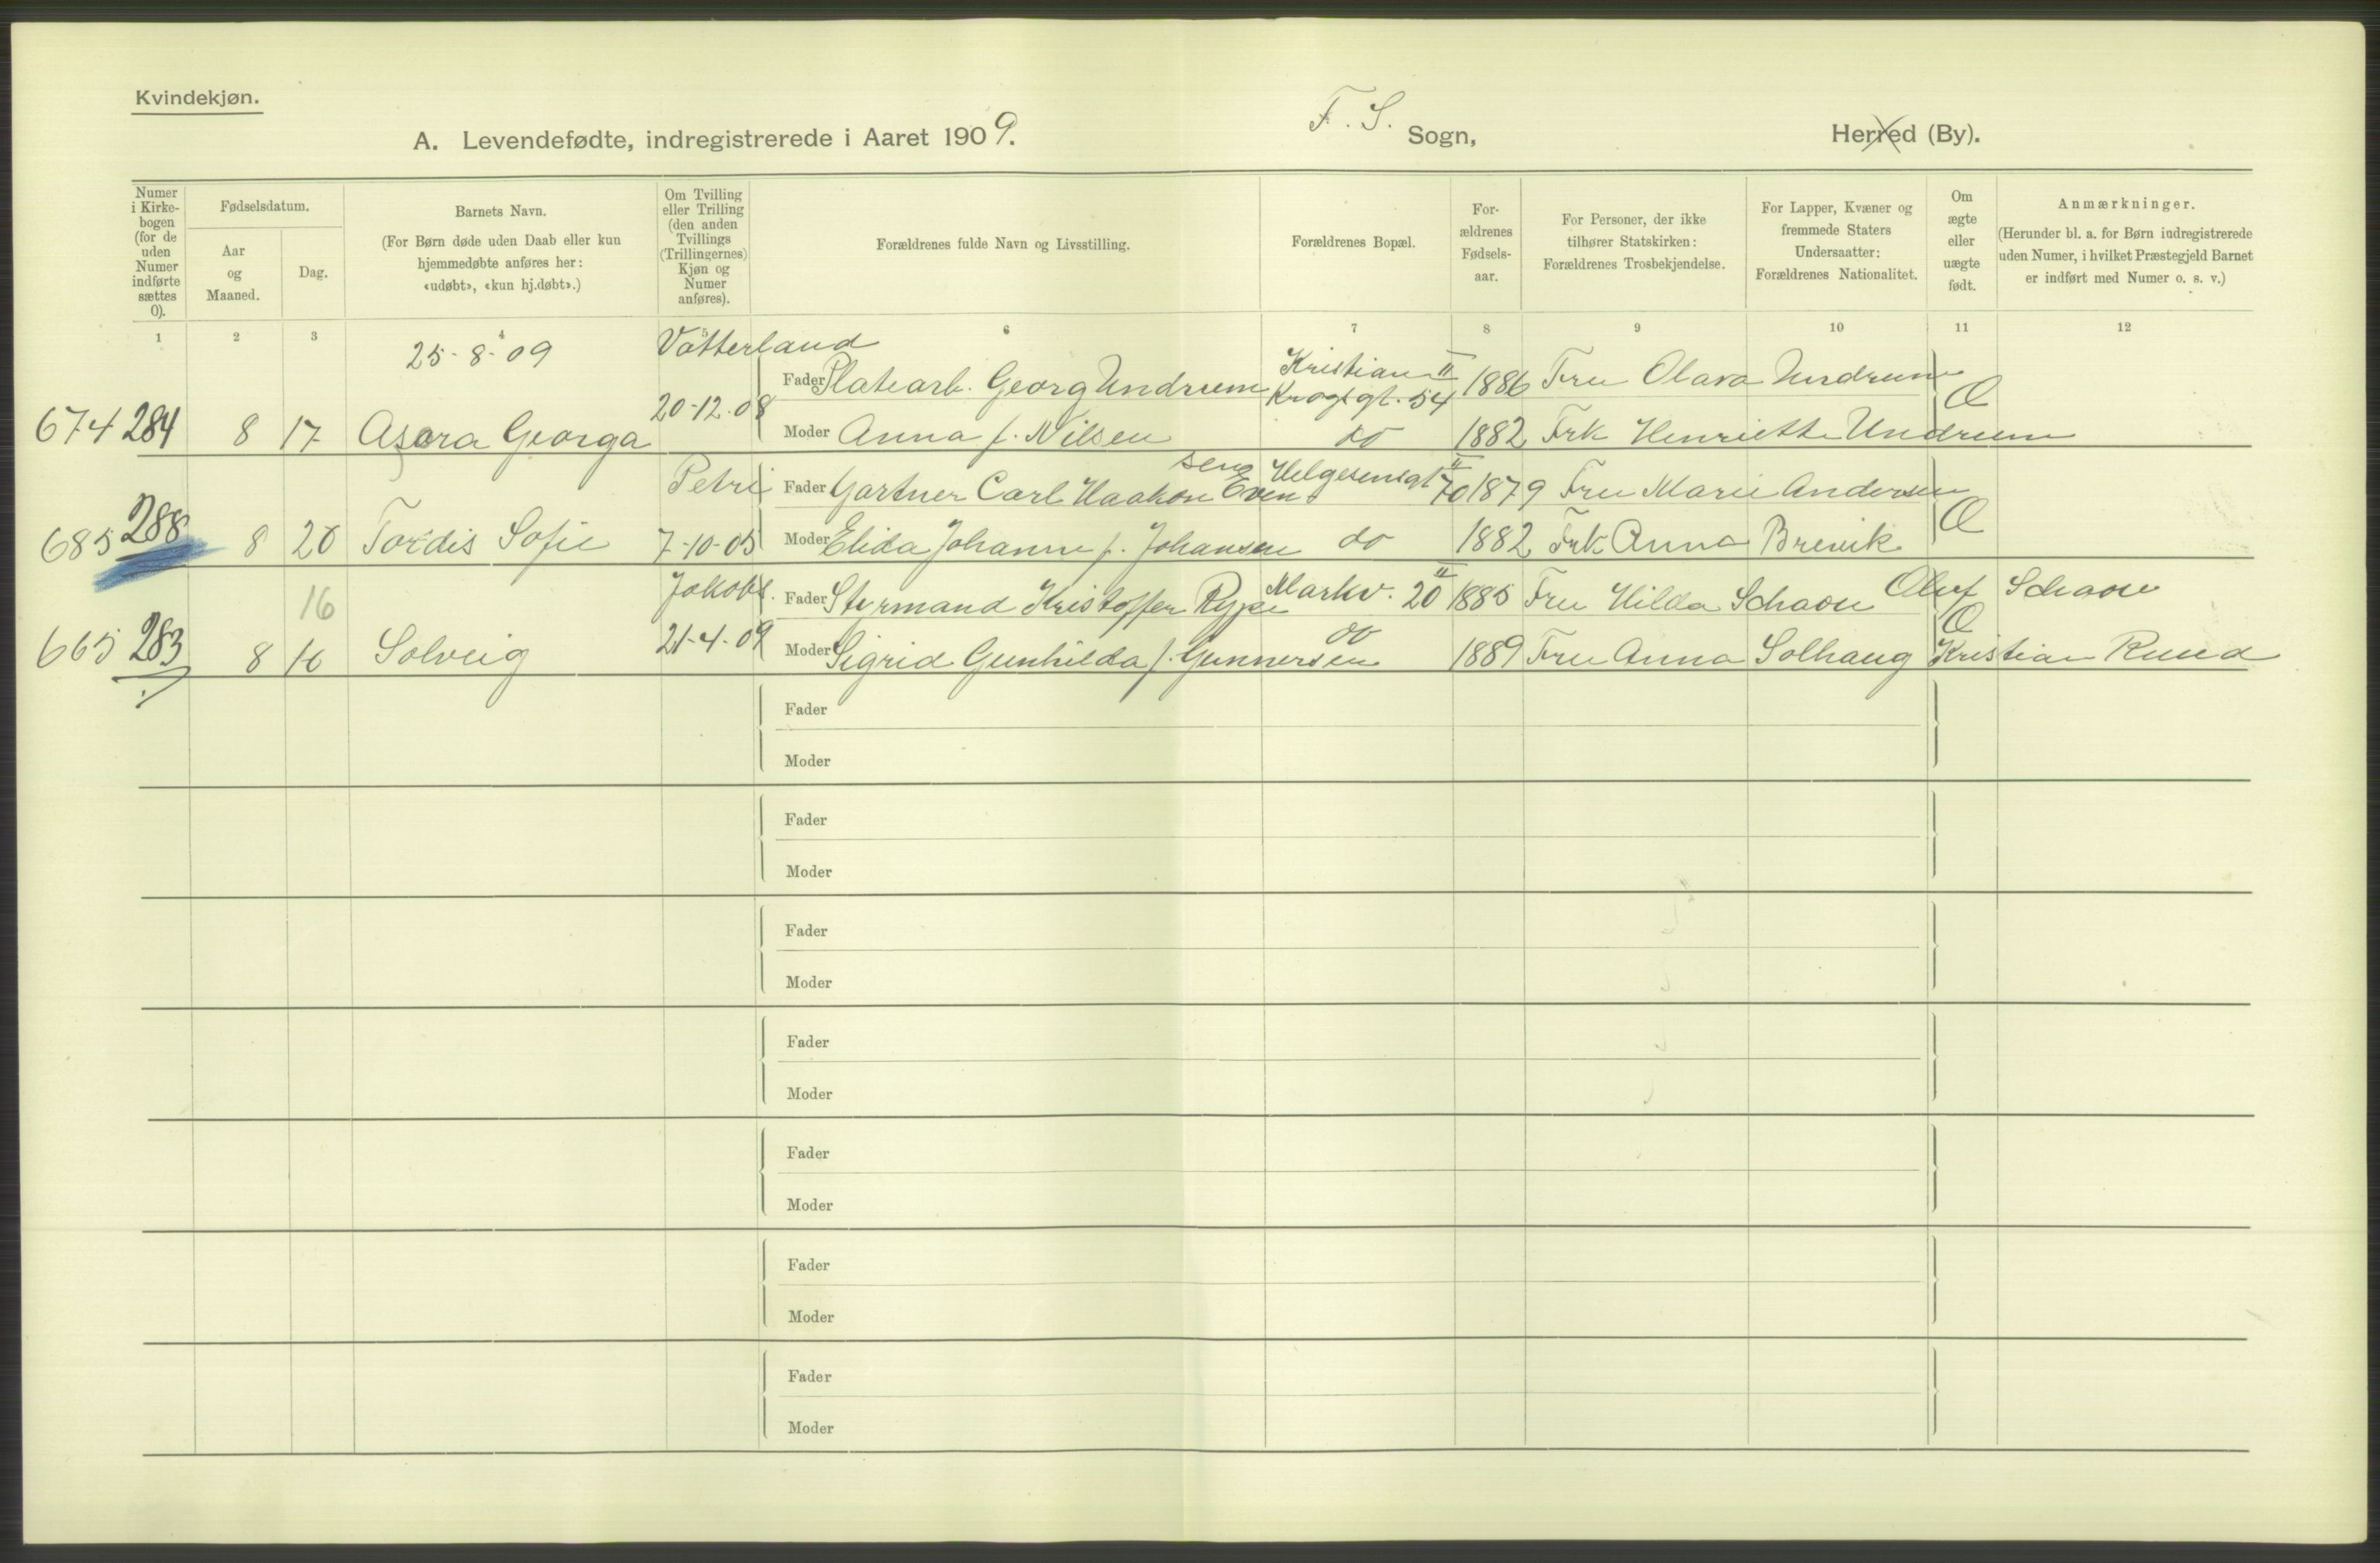 Kvindekjøn.
A. Levendefødte, indregistrerede i Aaret 1909.
F. S. Sogn,
Herred (By).
Numer i Kirke-bogen (for de uden Numer indførte sættes 0).
Fødselsdatum.
Aar og Maaned.
Dag.
Barnets Navn.
(For Børn døde uden Daab eller kun hjemmedøbte anføres her: «udøbt», «kun hj.døbt».)
Om Tvilling eller Trilling (den anden Tvillings (Trillingernes) Kjøn og Numer anføres).
Forældrenes fulde Navn og Livsstilling.
Forældrenes Bopæl.
For-ældrenes Fødsels-aar.
For Personer, der ikke tilhører Statskirken: Forældrenes Trosbekjendelse.
For Lapper, Kvæner og fremmede Staters Undersaatter: Forældrenes Nationalitet.
Om ægte eller uægte født.
Anmærkninger.
(Herunder bl. a. for Børn indregistrerede uden Numer, i hvilket Præstegjeld Barnet er indført med Numer o. s. v.)
1 2 3 4 5 6 7 8 9 10 11 12
25-8-09 Vatterland
Fader Platearb. Georg Undrum Kristian II Krogs gt. 54 1886 Fru Olava Undrum
674 284 8 17 Asora Georga 20-12-08 Moder Anna f. Nilsen do 1882 Frk Henriette Undrum Æ
Petri Fader Gartner Carl Haakon Evensen Helgesensgt 70 II 1879 Fru Marie Andersen
685 288 8 20 Tordis Sofie 7-10-05 Moder Elida Johanne f. Johansen do 1882 Frk Anna Brevik Æ
16 Jakobs. Fader Styrmand Kristoffer Rype Markv. 20 II 1885 Fru Hilda Schaou Oluf Schaou
665 283 8 16 Solveig 21-4-09 Moder Sigrid Gunhilda f. Gunnersen do 1889 Fru Anna Solhaug Kristian Ruud Æ
Fader
Moder
Fader
Moder
Fader
Moder
Fader
Moder
Fader
Moder
Fader
Moder
Fader
Moder